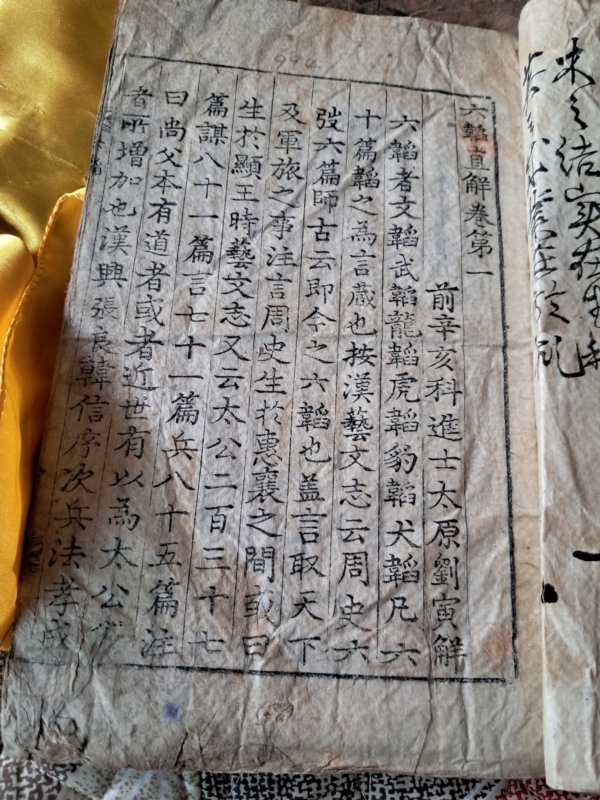 六韜直解卷第一
前辛亥科進士太原劉寅解
六韜者文韜武韜龍韜虎韜豹韜犬韜凡六
十篇韜之為言藏也按漢藝文志云周史六
弢六篇師古云即今之六韜也盖言取天下
及軍旅之事注言周史生於惠襄之間或曰
生於顯王時藝文志又云太公二百三十七
篇謀八十一篇言七十一篇兵八十五篇注
曰尚父本有道者或者近世有以為太公
者所增加也漢興張良韓信序次兵法孝成